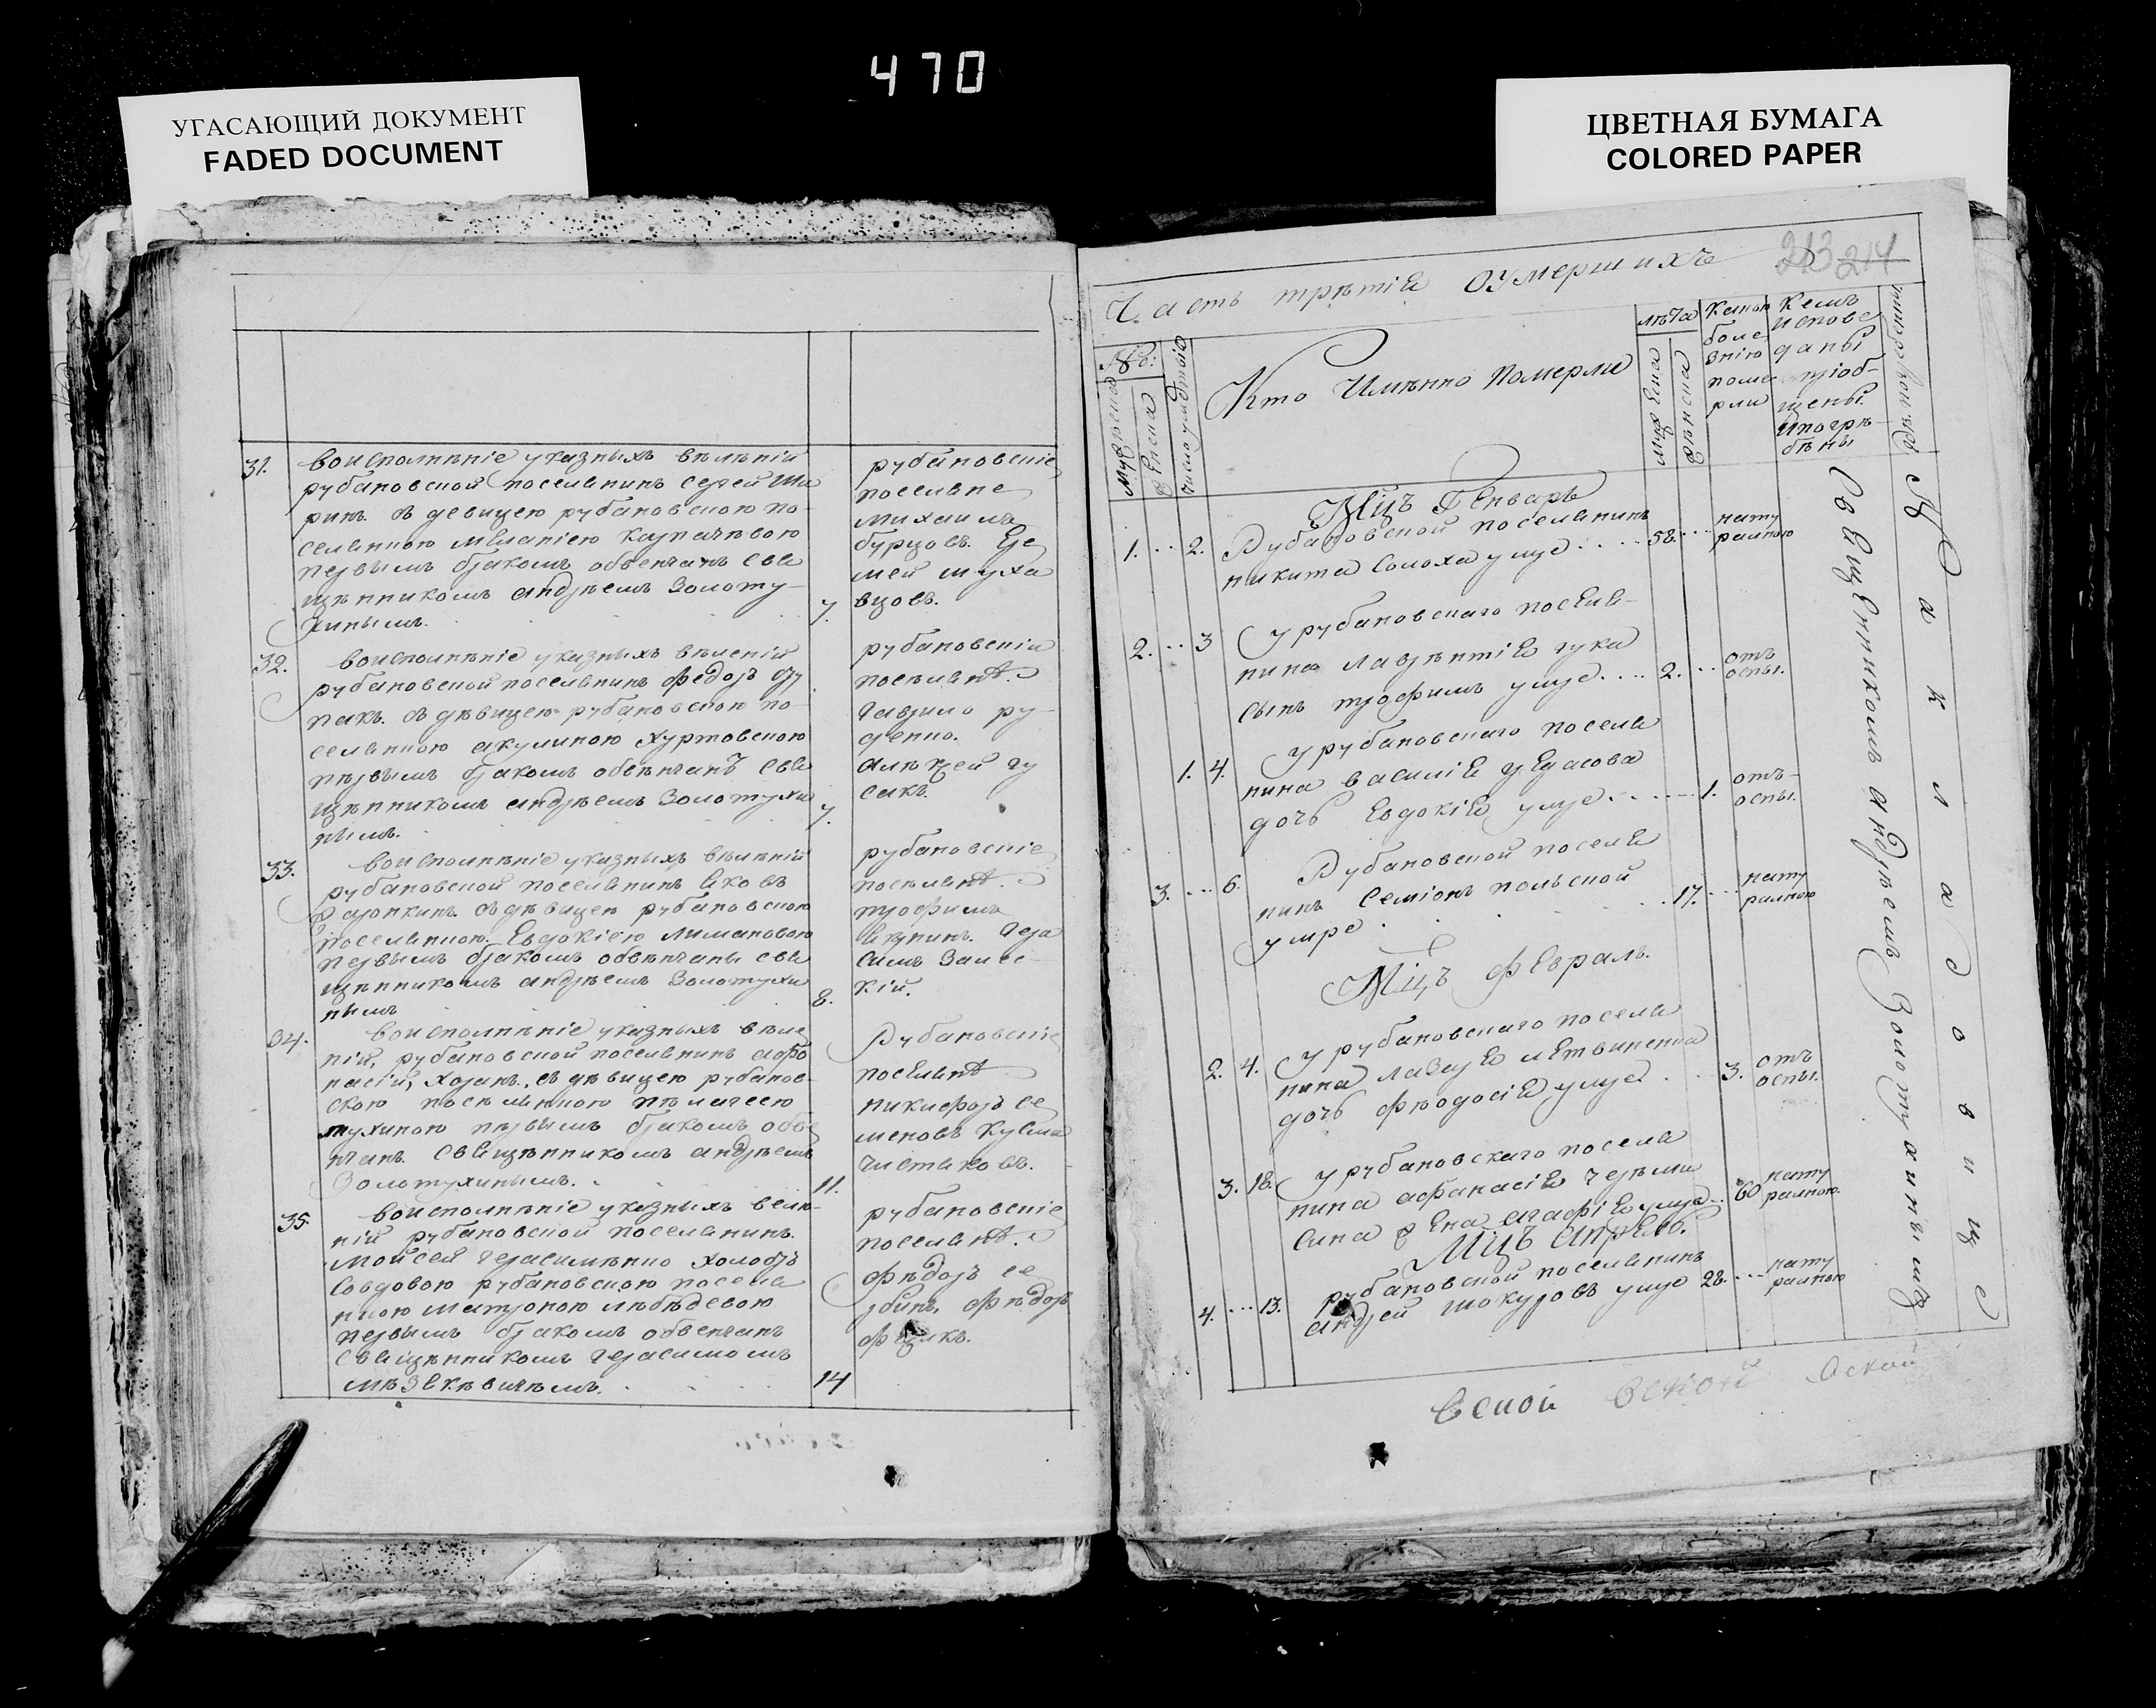 470
УГАСАЮЩИЙ ДОКУМЕНТ
FADED DOCUMENT
ЦВЕТНАЯ БУМАГА
COLORED PAPER
31.
воисполнѣніе указныхъ вѣлѣній
рубановской поселянинъ сергей
съ девицею рубановскою по-
селянною меланіею
первымъ бракомъ обвенчанъ свя
щѣнникомъ андрѣемъ Золоту-
хинымъ.
7.
рубановскіе
поселяне
михаилъ
бурцовъ. Ере
мей шуха
вцовъ.
32.
воисполнѣніе указныхъ вѣленій
рубановской поселянинъ федоръ
съ дѣвицею рубановскою по-
селянною акулиною хуртовскою
пѣрвымъ бракомъ обвѣнчанъ свя
щѣнникомъ андрѣемъ Золотухи
нымъ.
7.
рубановскіи
посѣляне
гаврило ру-
денко.
алѣксей гу
сакъ.
33.
воисполнѣніе указныхъ вѣлѣній
рубановской поселянинъ яковъ
съ дѣвицею рубановскою
поселянною. Евдокіею лимановою
первымъ бракомъ обвѣнчаны свя
щѣнникомъ андрѣемъ Золотухи
нымъ
8.
рубановскіе
посѣляне
трофимъ
Гера
симъ Залес-
кій.
34.
воисполнѣніе указныхъ вѣле
ній, рубановской поселянинъ афо
насій, съ дѣвицею рубанов-
скою посѣлянною пѣлагеею
пѣрвымъ бракомъ обве
нчанъ. Священникомъ андрѣемъ
Золотухинымъ.
11.
Рубановскіе
посЕляне
никифоръ се
меновъ Кузма
чистяковъ.
35.
воисполнѣніе указныхъ велѣ-
ній рубановской поселянинъ.
Мойсей герасимѣнко холодъ
Совдовою рубановскою поселя
нною матроною лѣбѣдевою
первымъ бракомъ обвенчанъ
Священникомъ герасимомъ
14
рубановскіе
поселяне
фѣдоръ се
рбинъ, фѣдоръ
213 214
Часть трѣтія оумершихъ
Кто Имѣнно померли
лѣта
Какою
боле
знію
поме
рли
Кемъ
испове
даны
пріоб-
щены.
Ипогрѣ-
бѣны
Мцъ Генварь
1. 2. Рубановской поселянинъ
никита Солоха умре 58. нату
ралною
2. 3 У рубановскаго посЕля-
нина лаврѣнтія гука
сынъ трофимъ умре 2. отъ
оспы.
1. 4. У рубановскаго поселя
нина василія
дочь Евдокія умре 1. отъ
оспы.
3. 6. Рубановской поселя
нинъ Семіонъ польской
умре 17. нату
ралною
Мцъ фЕвраль.
2. 4. У рубановскаго поселя
нина лазаря лЕтвиненка
дочь фѣодосія умре 3. отъ
оспы.
3. 18. У рубановскаго поселя
нина афанасія
сина жЕна агафія умре 60 нату
ралною.
Мцъ апрЕль.
4. 13. рубановской поселянинъ
андрей шокуровъ умре 28. нату
ралною
СвящЕнникомъ андрѣемъ Золотухинымъ
На кладовище
вской вской вской